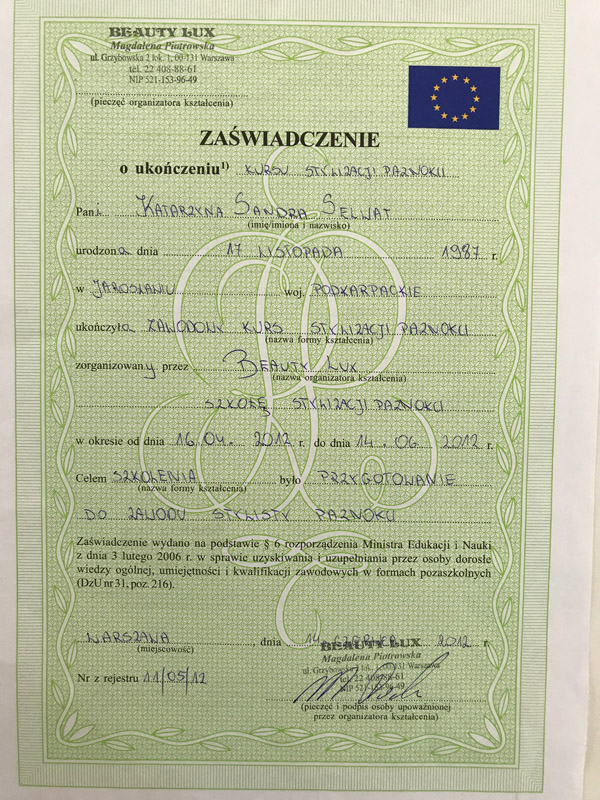 BEAUTY LUX
Magdalena Piotrowska
ul. Grzybowska 2 lok. 1, 00-131 Warszawa
tel. 22 408-88-61
NIP 521-153-96-49
(pieczęć organizatora kształcenia)
ZAŚWIADCZENIE
o ukończeniu¹⁾ KURSU STYLIZACJI PAZNOKCI
Pani KATARZYNA SANDRA SELWAT
(imię/imiona i nazwisko)
urodzona dnia 17 LISTOPADA 1987 r.
w JAROSŁAWIU woj. PODKARPACKIE
ukończyła ZAWODOWY KURS STYLIZACJI PAZNOKCI
(nazwa formy kształcenia)
zorganizowany przez BEAUTY LUX
(nazwa organizatora kształcenia)
SZKOŁĘ STYLIZACJI PAZNOKCI
w okresie od dnia 16.04. 2012 r. do dnia 14.06 2012 r.
Celem SZKOLENIA było PRZYGOTOWANIE
(nazwa formy kształcenia)
DO ZAWODU STYLISTY PAZNOKCI
Zaświadczenie wydano na podstawie § 6 rozporządzenia Ministra Edukacji i Nauki
z dnia 3 lutego 2006 r. w sprawie uzyskiwania i uzupełniania przez osoby dorosłe
wiedzy ogólnej, umiejętności i kwalifikacji zawodowych w formach pozaszkolnych
(DzU nr 31, poz. 216).
WARSZAWA, dnia 14 CZERWCA 2012 r.
(miejscowość)
BEAUTY LUX
Magdalena Piotrowska
ul. Grzybowska 2 lok. 1, 00-131 Warszawa
tel. 22 408-88-61
Nr z rejestru 11/05/12
NIP 521-153-96-49
(pieczęć i podpis osoby upoważnionej
przez organizatora kształcenia)